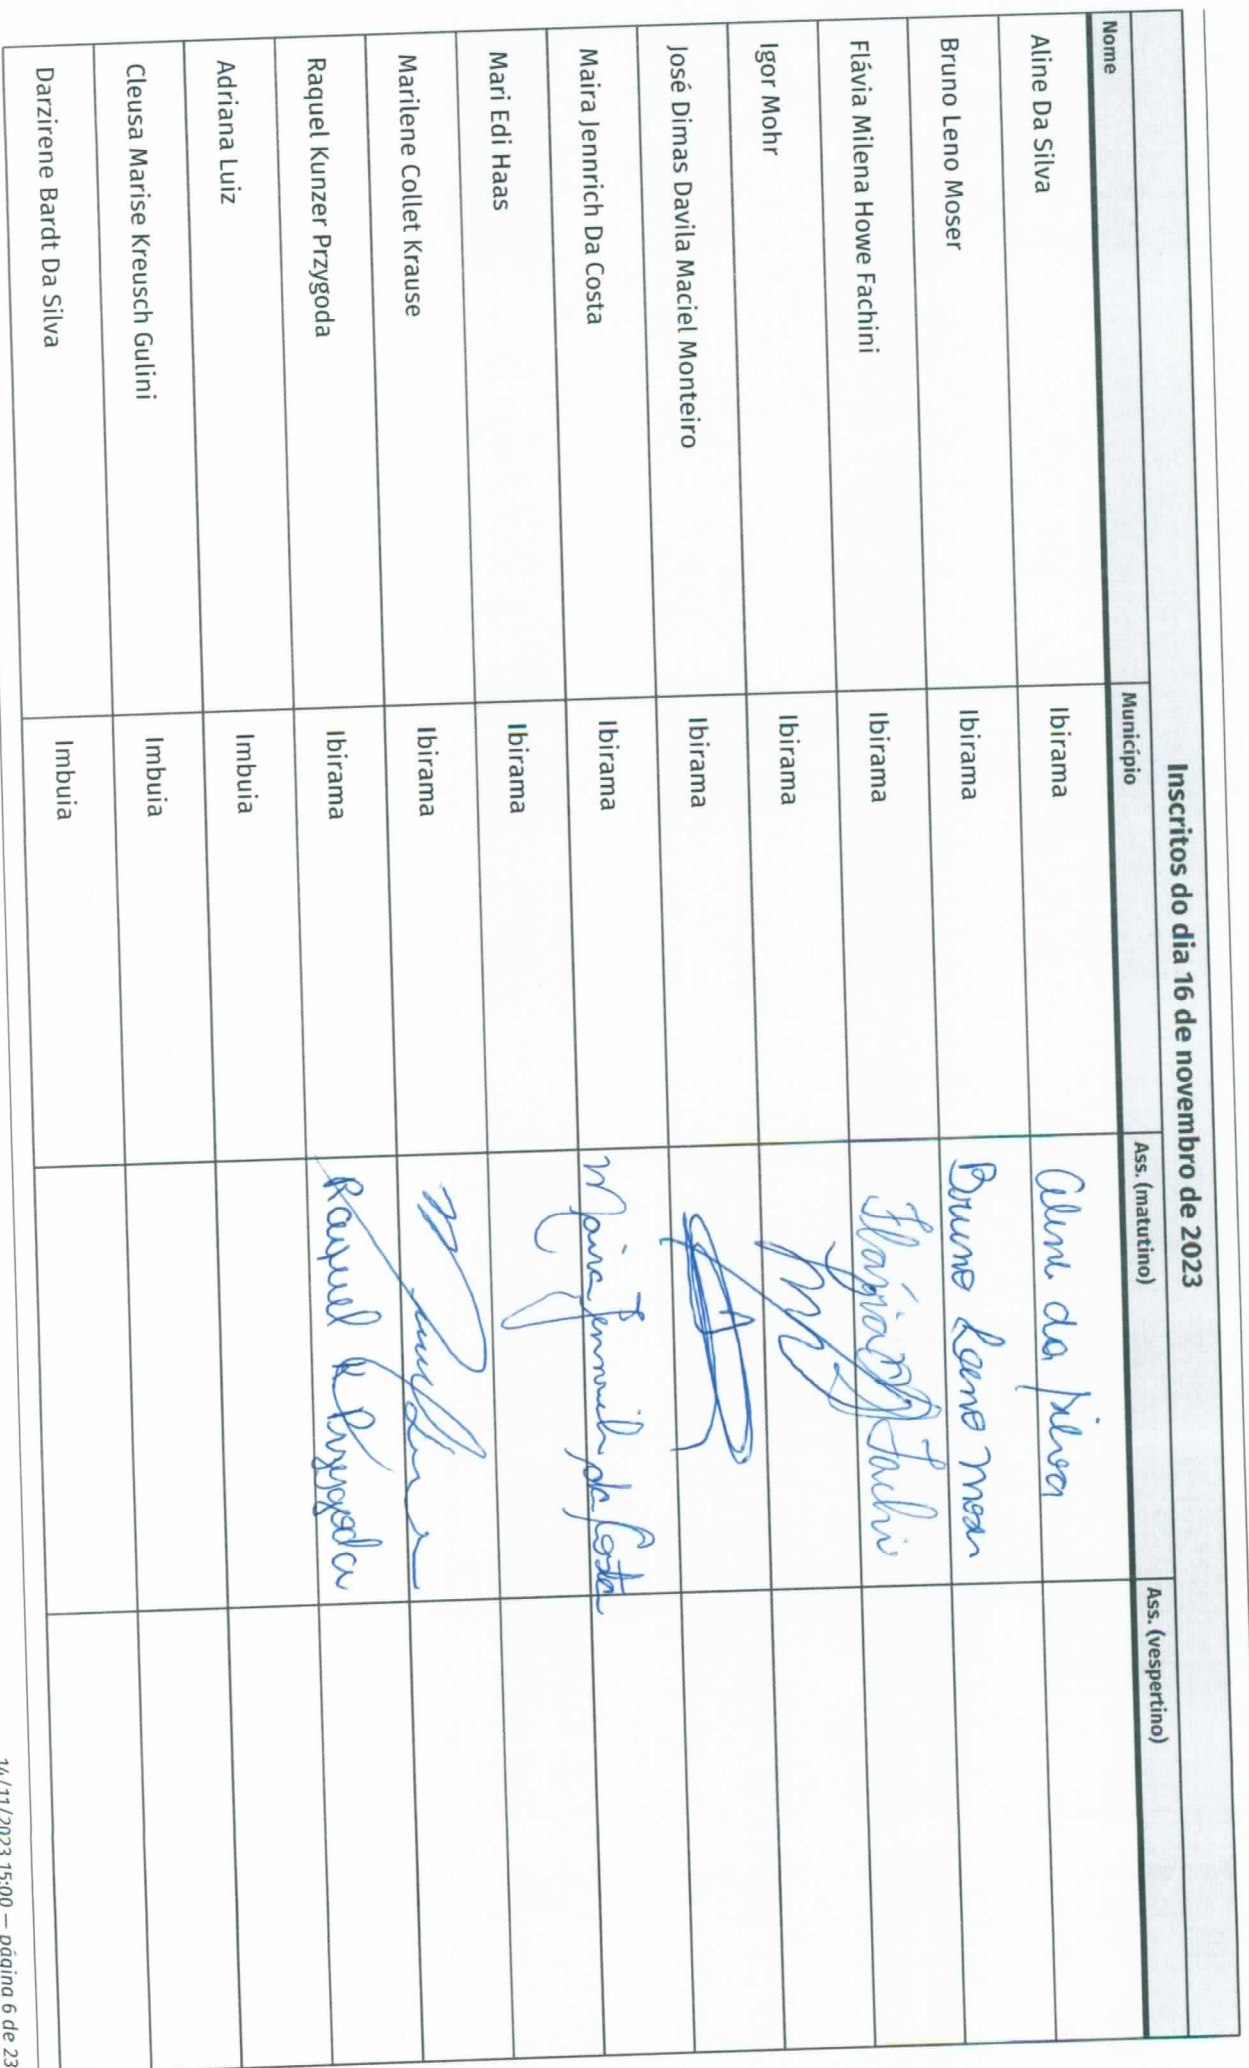 Inscritos do dia 16 de novembro de 2023
Nome Município Ass. (matutino) Ass. (vespertino)
Aline Da Silva Ibirama Aline da Silva
Bruno Leno Moser Ibirama Bruno Leno Moser
Flávia Milena Howe Fachini Ibirama Flávia
Igor Mohr Ibirama
José Dimas Davila Maciel Monteiro Ibirama
Maira Jennrich Da Costa Ibirama Maira Jennrich da Costa
Mari Edi Haas Ibirama
Marilene Collet Krause Ibirama
Raquel Kunzer Przygoda Ibirama Raquel K Przygoda
Adriana Luiz Imbuia
Cleusa Marise Kreusch Gulini Imbuia
Darzirene Bardt Da Silva Imbuia
14/11/2023 15:00 — página 6 de 23